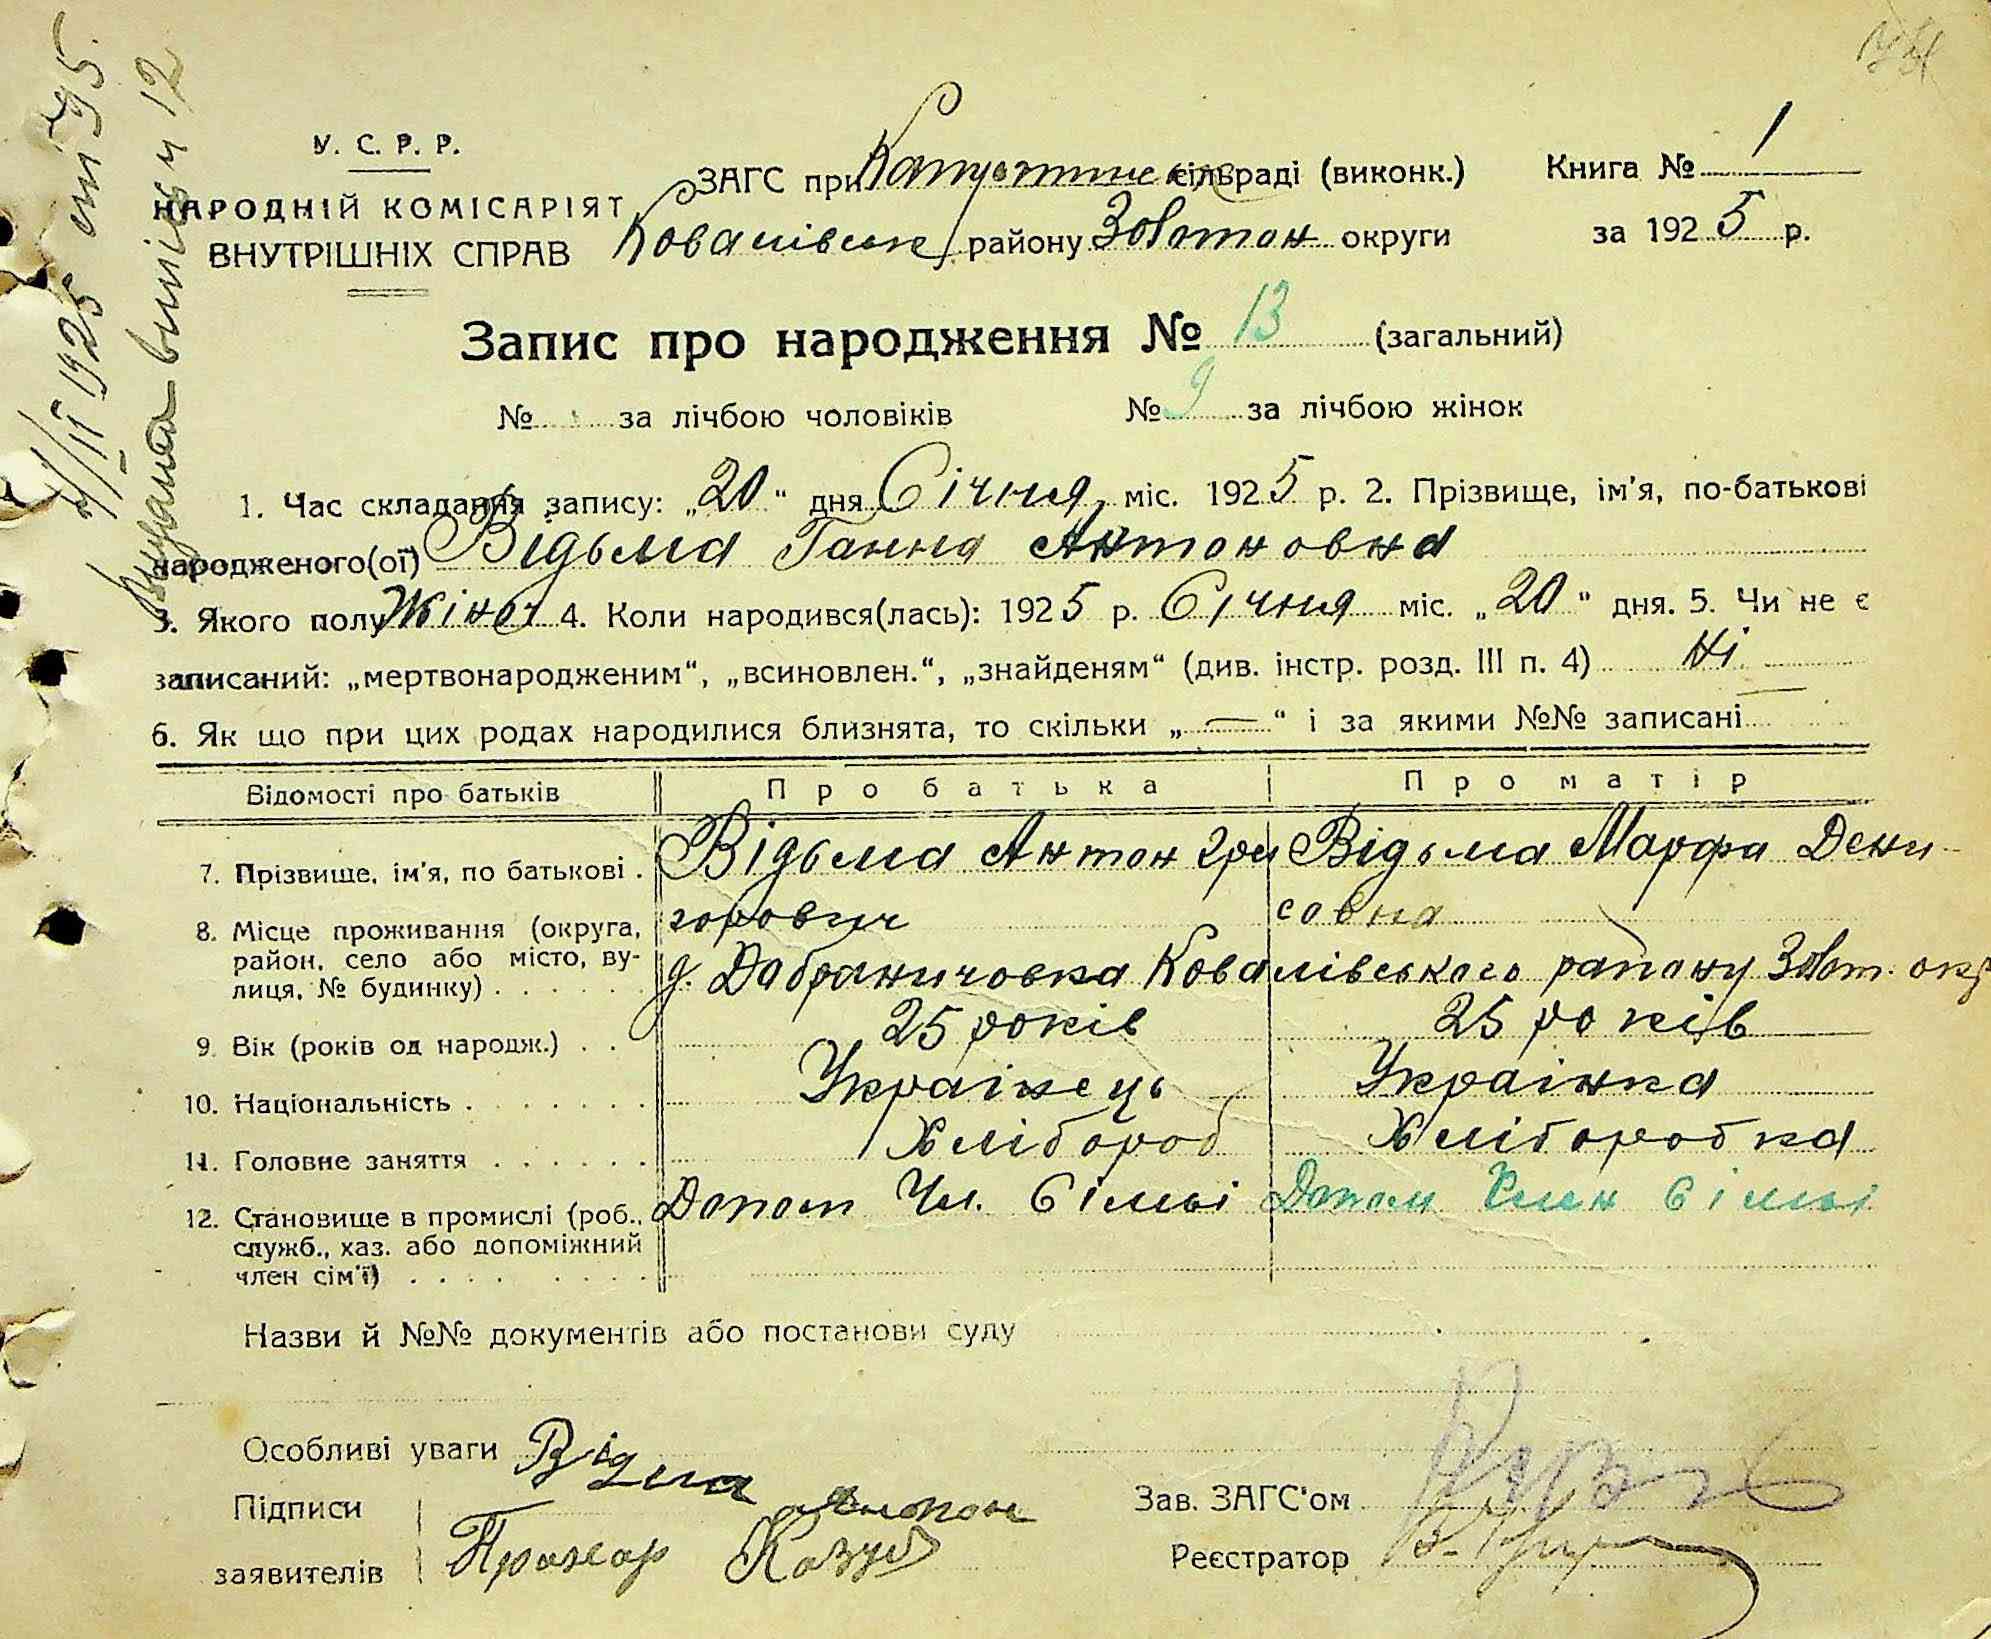 У. С. Р. Р.
НАРОДНІЙ КОМІСАРІЯТ
ВНУТРІШНІХ СПРАВ
ЗАГС при сільраді (виконк.)
Ковалівськ району Золотон округи
Книга № 1
за 1925 р.
Запис про народження № 13 (загальний)
№ за лічбою чоловіків № 9 за лічбою жінок
1. Час складання запису: „20“ дня Січня міс. 1925 р. 2. Прізвище, ім'я, по-батькові
народженого(ої) Відьма Ганна Антоновна
3. Якого полу Жіноч 4. Коли народився(лась): 1925 р. Січня міс. „20“ дня. 5. Чи не є
записаний: „мертвонародженим“, „всиновлен.“, „знайденям“ (див. інстр. розд. III п. 4) Ні
6. Як що при цих родах народилися близнята, то скільки „—“ і за якими №№ записані
Відомості про батьків
Про батька
Про матір
7. Прізвище, ім'я, по батькові .
Відьма Антон Гри
горович
Відьма Марфа Дени-
совна
8. Місце проживання (округа,
район, село або місто, ву-
лиця, № будинку) . . . . .
д. Добраничовка Ковалівського району Золот. окр
9. Вік (років од народж.) . .
25 років
25 років
10. Національність . . . . . . .
Українець
Українка
11. Головне заняття . . . . . .
Хлібороб
Хліборобка
12. Становище в промислі (роб.,
служб., хаз. або допоміжний
член сім'ї) . . . . . . . . .
Допом Чл. Сімьі
Допом Член Сімьі
Назви й №№ документів або постанови суду
Особливі уваги
Підписи
заявителів
Відма Антон
Прохор Козуб
Зав. ЗАГС'ом
Реєстратор
1925
12